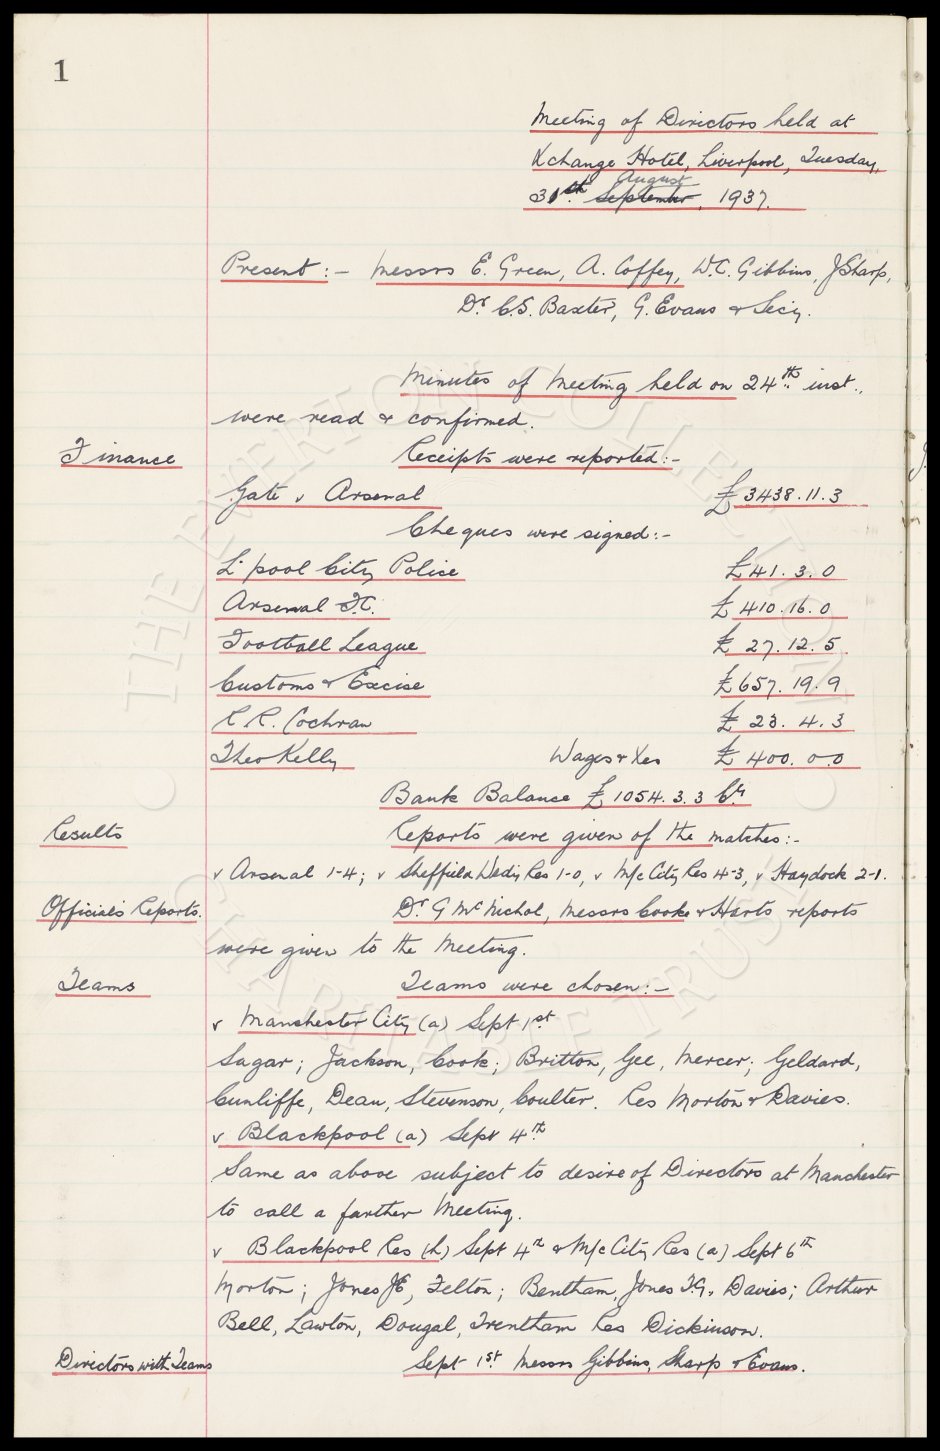 1
Meeting of Directors held at
Xchange Hotel, Liverpool, Tuesday,
August
31st September, 1937.
Present:- Messrs E. Green, A. Coffey, W.C. Gibbins, J Sharp,
Dr. C.S. Baxter, G. Evans & Secy.
Minutes of Meeting held on 24th inst.,
were read & confirmed.
Finance Receipts were reported:-
Gate v Arsenal £3438.11.3
Cheques were signed:-
L'pool City Police £41.3.0
Arsenal F.C. £410.16.0
Football League £27.12.5
Customs & Excise £657.19.9
R.R. Cochran £23.4.3
Theo Kelly Wages & Xes £400.0.0
Bank Balance £1054.3.3 Cr.
Results Reports were given of the matches:-
v Arsenal 1-4; v Sheffield Wedy Res 1-0, v M/c City Res 4-3, v Haydock 2-1.
Official's Reports. Dr G McNichol, Messrs Cooke & Harts reports
were given to the Meeting.
Teams Teams were chosen:-
v Manchester City (a) Sept 1st
Sagar; Jackson, Cook; Britton, Gee, Mercer; Geldard,
Cunliffe, Dean, Stevenson, Coulter. Res Morton & Davies.
v Blackpool (a) Sept 4th
Same as above subject to desire of Directors at Manchester
to call a further Meeting.
v Blackpool Res (h) Sept 4th & M/c City Res (a) Sept 6th
Morton; Jones JE, Felton; Bentham, Jones T.G., Davies; Arthur
Bell, Lawton, Dougal, Trentham Res Dickinson.
Directors with Teams Sept 1st Messrs Gibbins, Sharp & Evans.
THE EVERTON COLLECTION
CHARITABLE TRUST